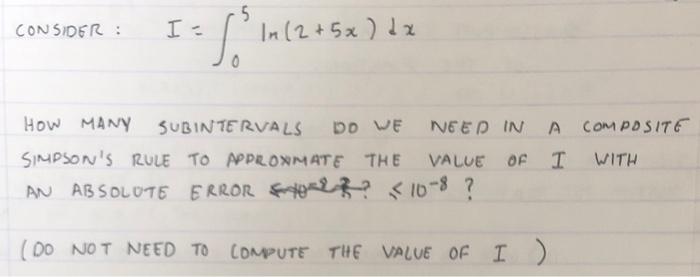 CONSIDER : I = ∫₀⁵ ln(2+5x) dx
HOW MANY SUBINTERVALS DO WE NEED IN A COMPOSITE
SIMPSON'S RULE TO APPROXIMATE THE VALUE OF I WITH
AN ABSOLUTE ERROR ≤ 10⁻⁸ ?
(DO NOT NEED TO COMPUTE THE VALUE OF I )